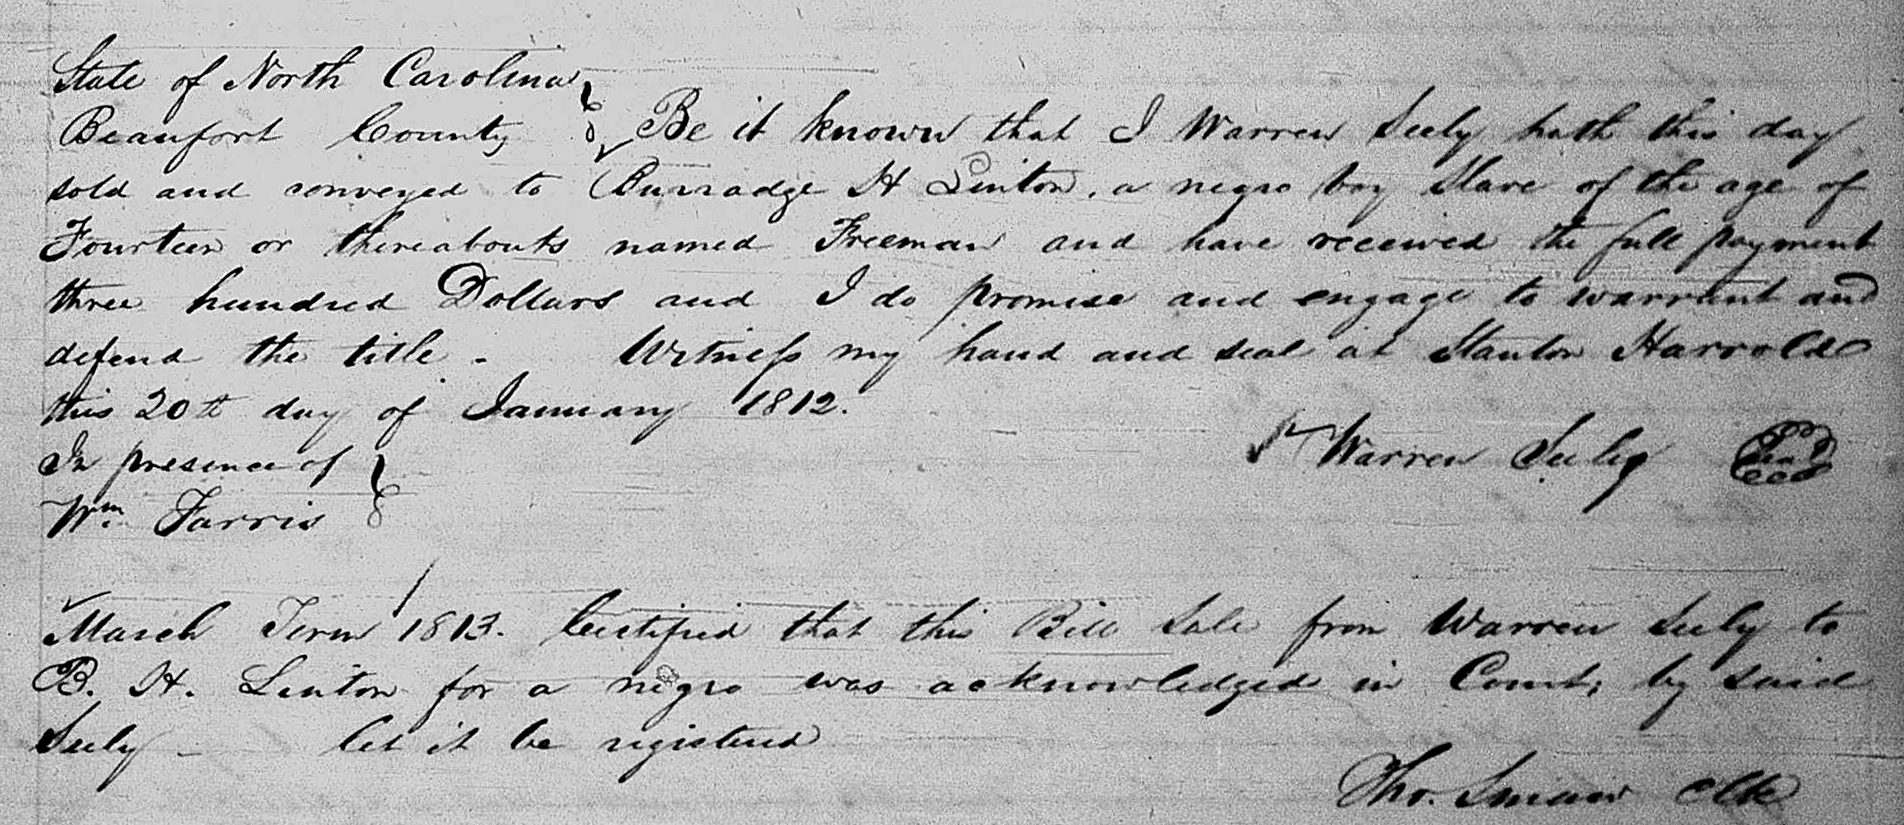 State of North Carolina
Beaufort County } Be it known that I Warren Seely hath this day
sold and conveyed to Burradge H Linton, a negro boy Slave of the age of
Fourteen or thereabouts named Freeman and have received the full payment
three hundred Dollars and I do promise and engage to warrant and
defend the title - Witness my hand and seal at Stanton Harrold
this 20th day of January 1812.
In presence of } Warren Seely Seal
Wm Farris
March Term 1813. Certified that this Bill Sale from Warren Seely to
B. H. Linton for a negro was acknowledged in Court; by said
Seely - let it be registered
Tho. Smaw Clk